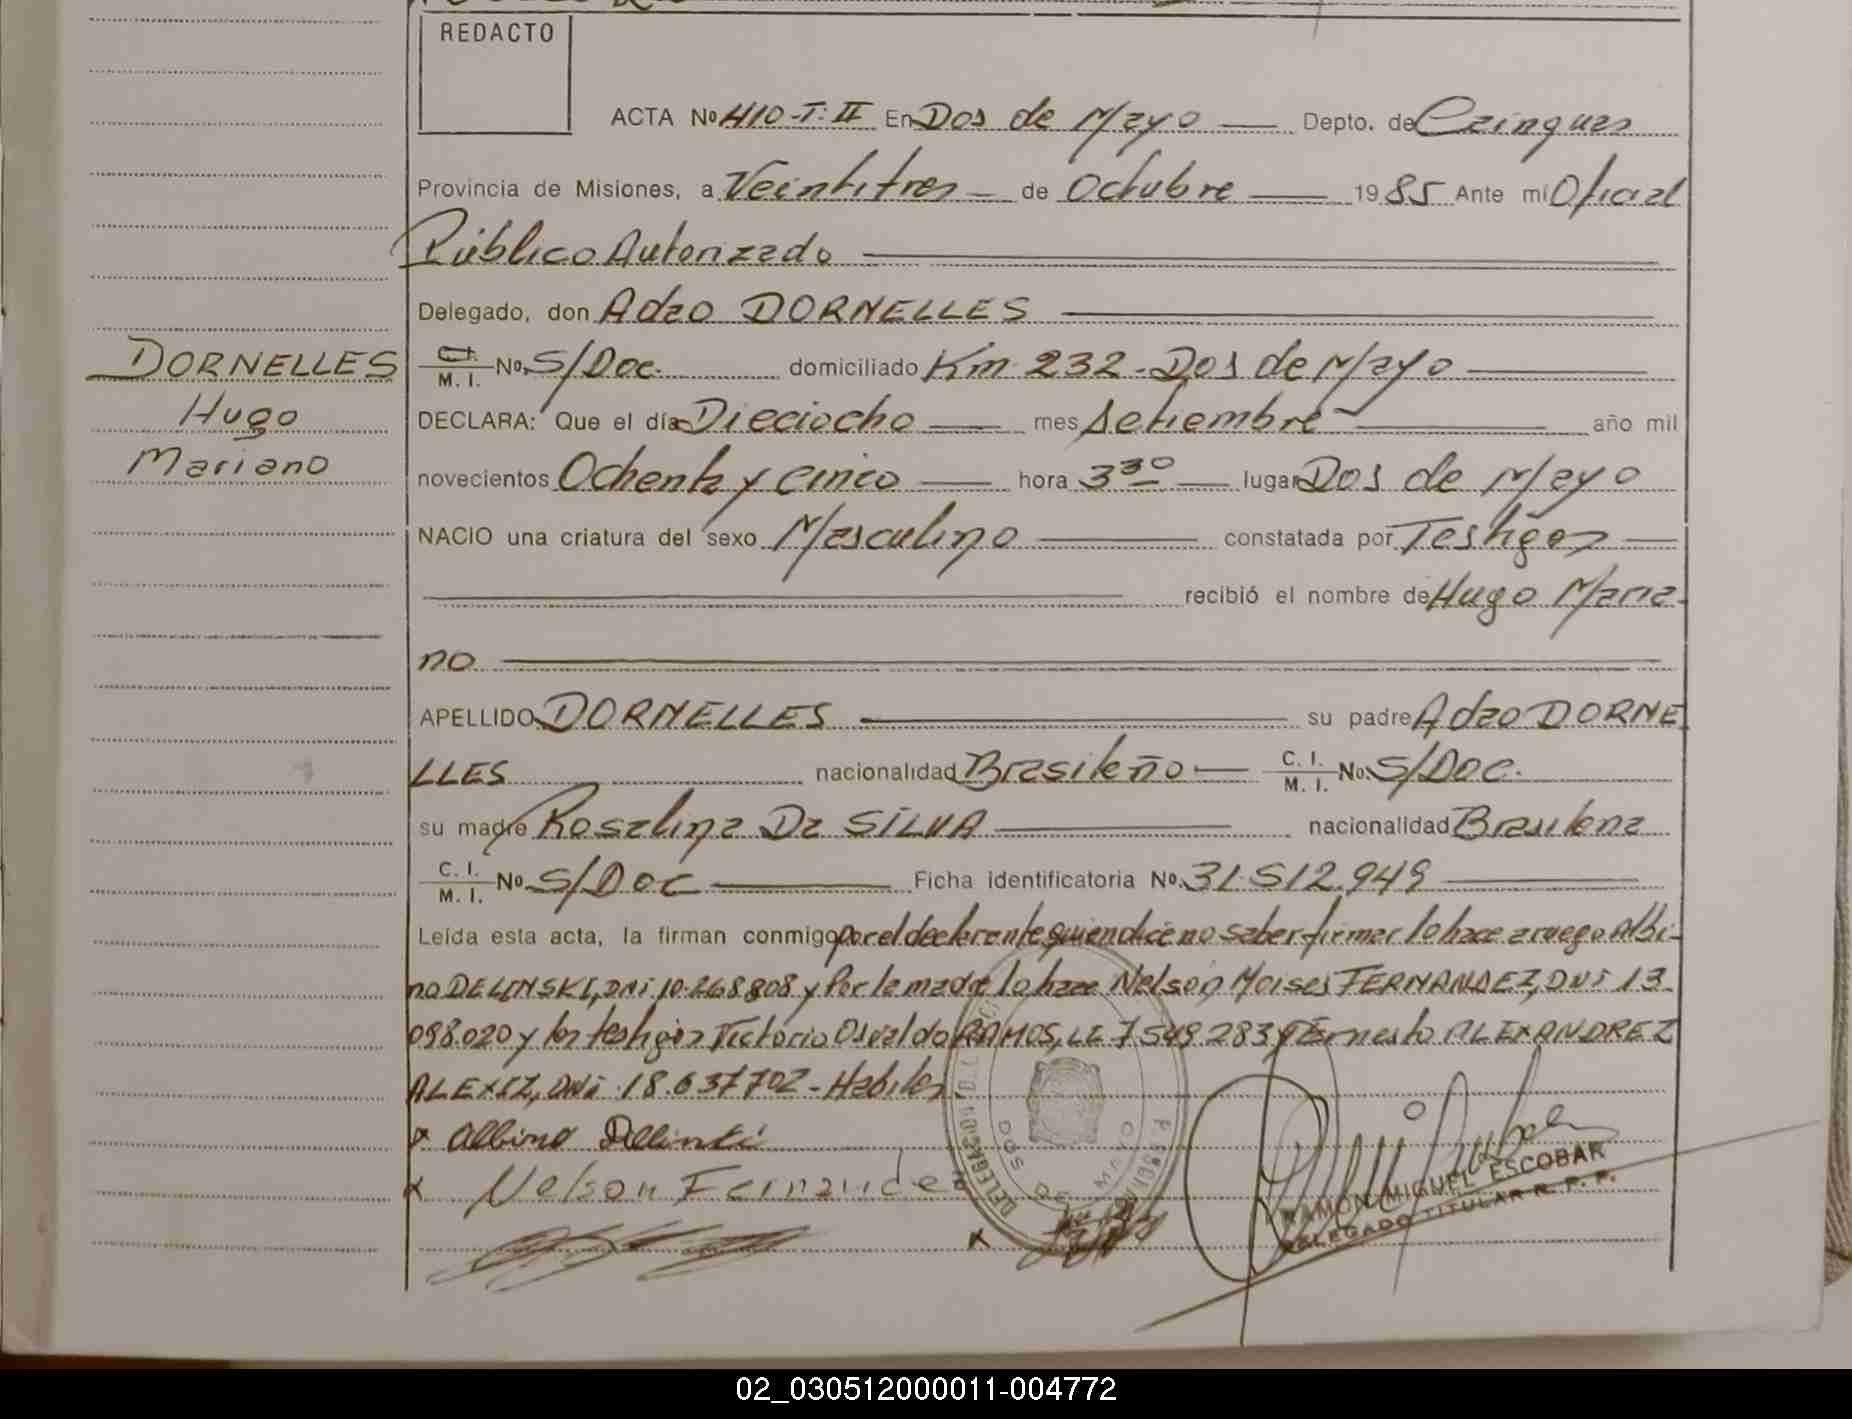 REDACTO
ACTA Nº 410-T: II En Dos de Mayo Depto. de Cainguas
Provincia de Misiones, a Veintitres de Octubre 1985 Ante mi Oficial
Público Autorizado
Delegado, don Adao DORNELLES
C.I. M. I. No. S/Doc. domiciliado Km 232 - Dos de Mayo
DORNELLES
Hugo
Mariano
DECLARA: Que el día Dieciocho mes Setiembre año mil
novecientos Ochenta y cinco hora 3 30 lugar Dos de Mayo
NACIO una criatura del sexo Masculino constatada por Testigos
recibió el nombre de Hugo Maria-
no
APELLIDO DORNELLES su padre Adao DORNE
LLES nacionalidad Brasileño C. I. M. I. No. S/Doc.
su madre Rosalina Da SILVA nacionalidad Brasilena
C. I. M. I. No. S/Doc Ficha identificatoria No. 31.512.949
Leída esta acta, la firman conmigo por el declarante quien dice no saber firmar lo hace a ruego Albi-
no DELINSKI, DNI 10.268.808 y Por la madre lo hace Nelson Moises FERNANDEZ, DNI 13.
098.020 y los testigos Victorio Osvaldo RAMOS, LE 7549283 y Ernesto ALEXANDREZ
ALEXIZ, DNI 18.637702 - Habiles.
x Albino Delinski
x Nelson Fernandez
x
DOS DE MAYO
RAMON MIGUEL ESCOBAR
DELEGADO TITULAR R. P. P.
02_030512000011-004772